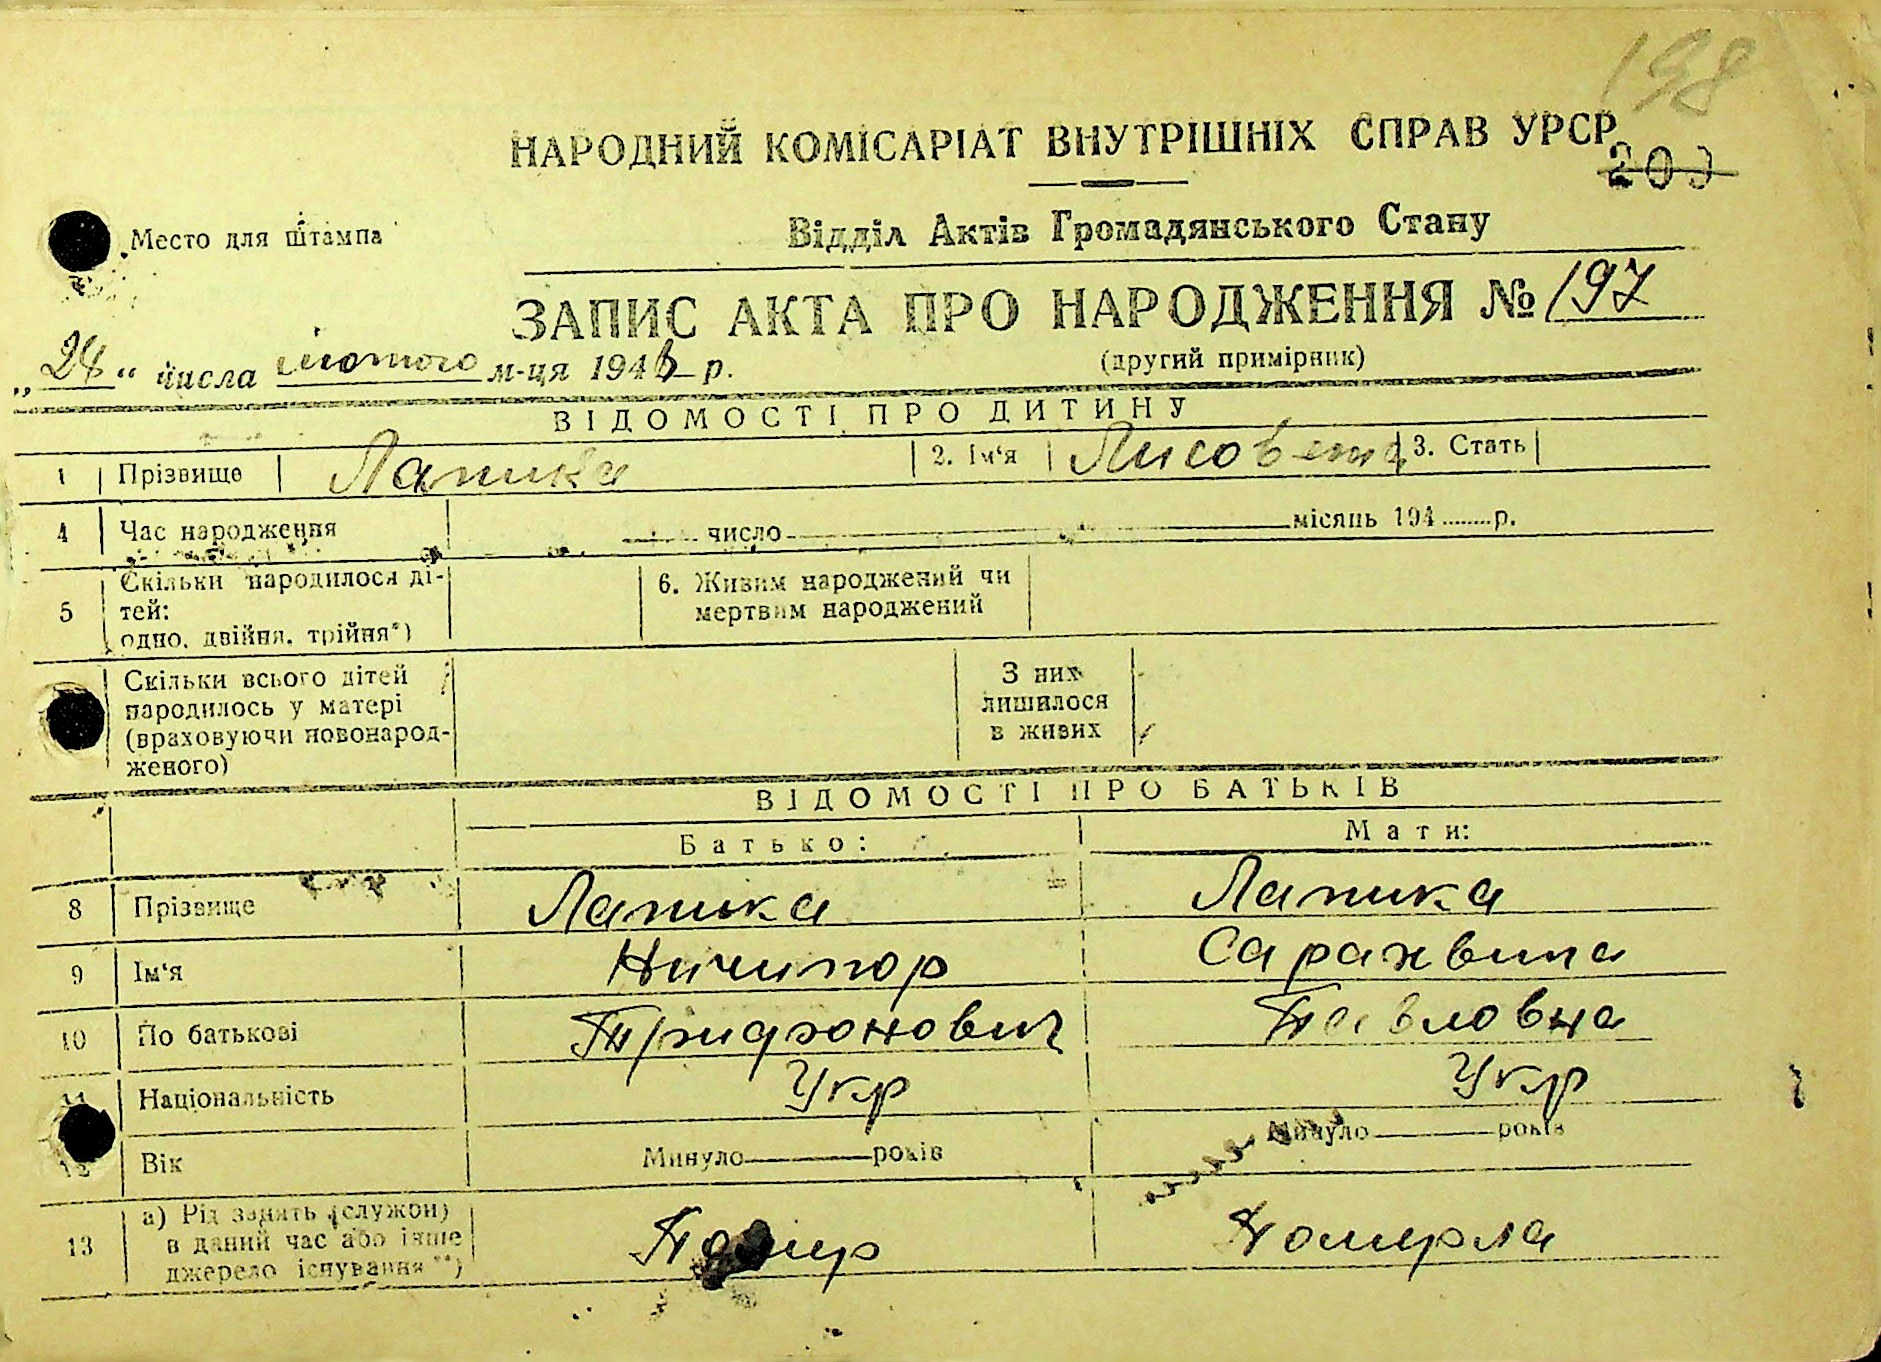 198
НАРОДНИЙ КОМІСАРІАТ ВНУТРІШНІХ СПРАВ УРСР
200
Место для штампа
Відділ Актів Громадянського Стану
ЗАПИС АКТА ПРО НАРОДЖЕННЯ № 197
(другий примірник)
„28“ числа лютого м-ця 194 р.
ВІДОМОСТІ ПРО ДИТИНУ
1 Прізвище Лапика 2. Ім‘я Лисовета 3. Стать
4 Час народження число місяць 194 р.
5 Скільки народилося ді-
тей:
одно, двійня, трійня*)
6. Живим народжений чи
мертвим народжений
Скільки всього дітей
народилось у матері
(враховуючи новонарод-
женого)
З них
лишилося
в живих
ВІДОМОСТІ ПРО БАТЬКІВ
Батько: Мати:
8 Прізвище Лапика Лапика
9 Ім‘я Ничипор Сарахвима
10 По батькові Трифонович Павловна
11 Національність Укр Укр
12 Вік Минуло років Минуло років
13 а) Рід занять (служби)
в даний час або інше
джерело існування**)
Помир Померла